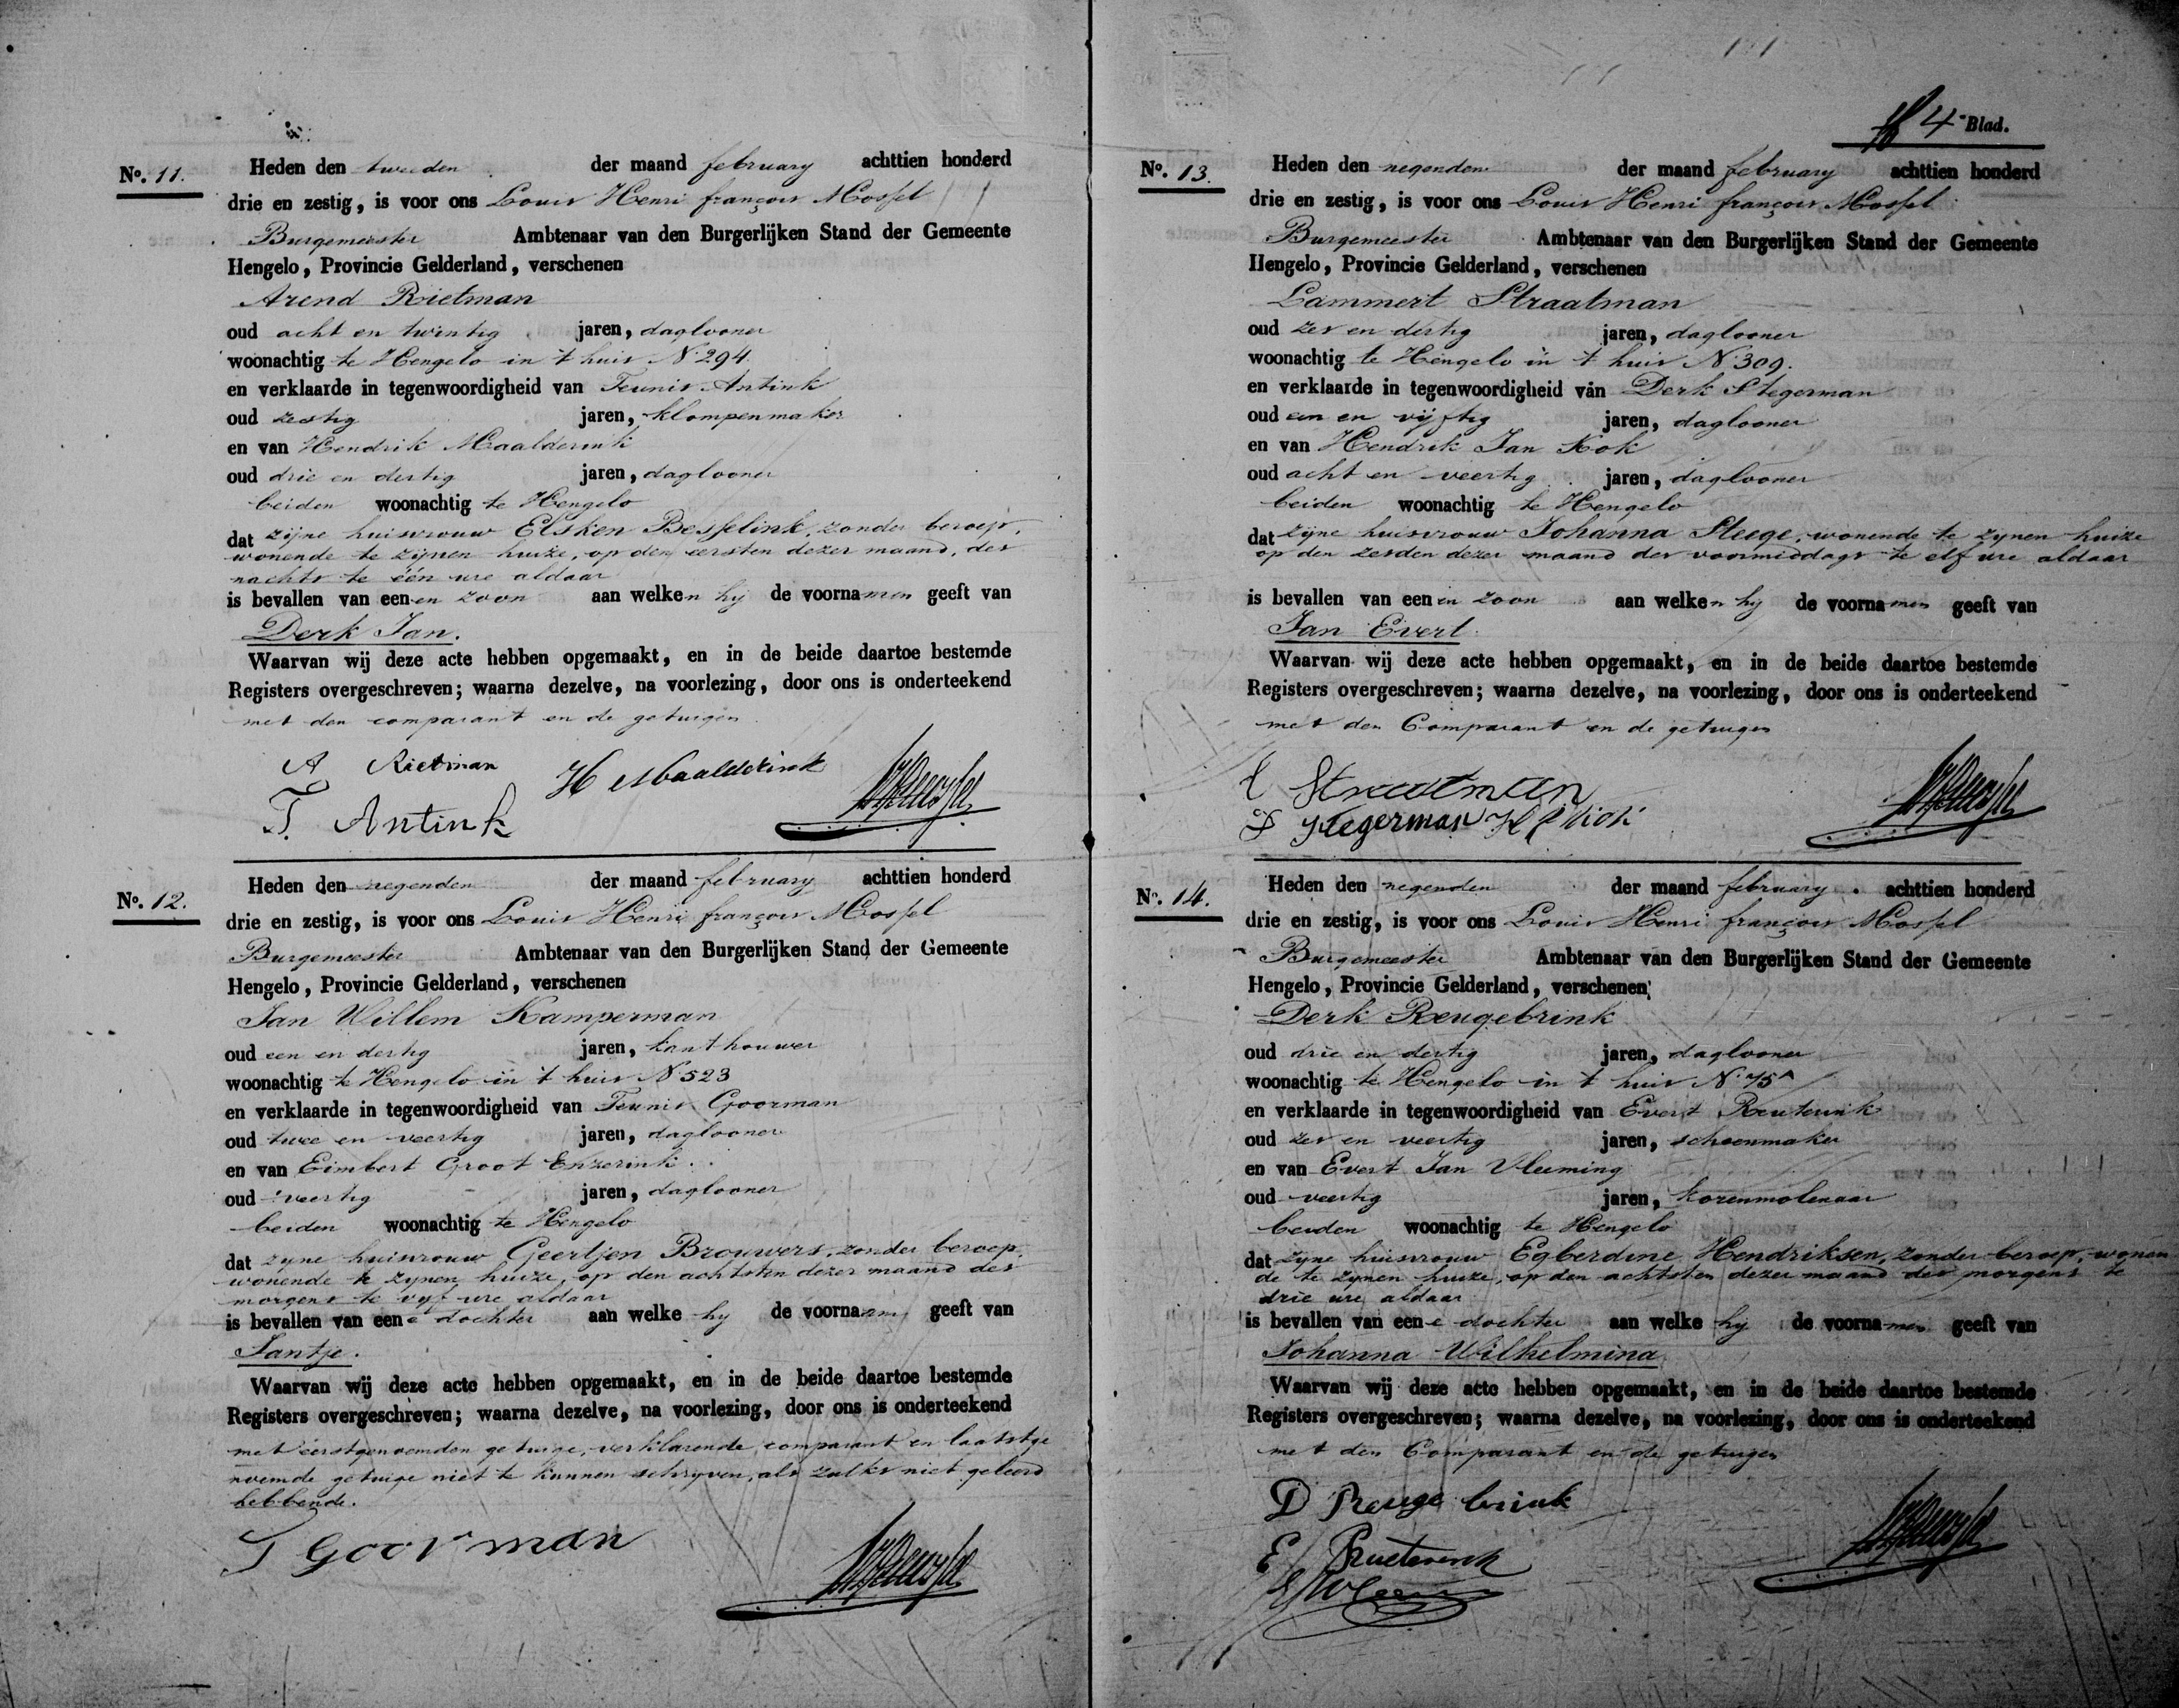 No. 11.
Heden den tweeden der maand february achttien honderd
drie en zestig, is voor ons Louis Henri françois Mossel
Burgemeester Ambtenaar van den Burgerlijken Stand der Gemeente
Hengelo, Provincie Gelderland, verschenen
Arend Rietman
oud acht en twintig jaren, daglooner
woonachtig te Hengelo in 't huis No. 294.
en verklaarde in tegenwoordigheid van Teunis Antink
oud zestig jaren, klompenmaker
en van Hendrik Maalderink
oud drie en dertig jaren, daglooner
beiden woonachtig te Hengelo
dat zijne huisvrouw Elsken Besselink, zonder beroep,
wonende te zijnen huize, op den eersten dezer maand, des
nachts te één ure aldaar
is bevallen van eenen zoon aan welken hij de voornamen geeft van
Derk Jan.
Waarvan wij deze acte hebben opgemaakt, en in de beide daartoe bestemde
Registers overgeschreven; waarna dezelve, na voorlezing, door ons is onderteekend
met den comparant en de getuigen
A Rietman H Maalderink
T. Antink
No. 12.
Heden den negenden der maand february achttien honderd
drie en zestig, is voor ons Louis Henri françois Mossel
Burgemeester Ambtenaar van den Burgerlijken Stand der Gemeente
Hengelo, Provincie Gelderland, verschenen
Jan Willem Kamperman
oud een en dertig jaren, kanthouwer
woonachtig te Hengelo in 't huis No. 523
en verklaarde in tegenwoordigheid van Teunis Goorman
oud twee en veertig jaren, daglooner
en van Eimbert Groot Enzerink.
oud veertig jaren, daglooner
beiden woonachtig te Hengelo
dat zyne huisvrouw Geertjen Brouwers, zonder beroep,
wonende te zynen huize, op den achtsten dezer maand des
morgens te vyf ure aldaar
is bevallen van eene dochter aan welke hy de voornaam geeft van
Jantje.
Waarvan wij deze acte hebben opgemaakt, en in de beide daartoe bestemde
Registers overgeschreven; waarna dezelve, na voorlezing, door ons is onderteekend
met eerstgenoemden getuige, verklarende comparant en laatstge
noemde getuige niet te kunnen schryven, als zulks niet geleerd
hebbende.
T Goorman
4e Blad.
No. 13.
Heden den negenden der maand february achttien honderd
drie en zestig, is voor ons Louis Henri françois Mossel
Burgemeester Ambtenaar van den Burgerlijken Stand der Gemeente
Hengelo, Provincie Gelderland, verschenen
Lammert Straatman
oud zes en dertig jaren, daglooner
woonachtig te Hengelo in 't huis No. 309.
en verklaarde in tegenwoordigheid van Derk Stegerman
oud een en vijftig jaren, daglooner
en van Hendrik Jan Kok
oud acht en veertig jaren, daglooner
beiden woonachtig te Hengelo
dat zijne huisvrouw Johanna Stege, wonende te zynen huize
op den zesden dezer maand des voormiddags te elf ure aldaar
is bevallen van eenen zoon aan welken hy de voornamen geeft van
Jan Evert.
Waarvan wij deze acte hebben opgemaakt, en in de beide daartoe bestemde
Registers overgeschreven; waarna dezelve, na voorlezing, door ons is onderteekend
met den Comparant en de getuigen
L Straatman
D Stegerman H J Kok
No. 14.
Heden den negenden der maand february achttien honderd
drie en zestig, is voor ons Louis Henri françois Mossel
Burgemeester Ambtenaar van den Burgerlijken Stand der Gemeente
Hengelo, Provincie Gelderland, verschenen
Derk Reugebrink
oud drie en dertig jaren, daglooner
woonachtig te Hengelo in 't huis No. 75A
en verklaarde in tegenwoordigheid van Evert Reuterink
oud zes en veertig jaren, schoenmaker
en van Evert Jan Vleeming
oud veertig jaren, korenmolenaar
beiden woonachtig te Hengelo
dat zyne huisvrouw Egberdine Hendriksen, zonder beroep, wonen
de te zynen huize, op den achtsten dezer maand des morgens te
drie ure aldaar
is bevallen van eene dochter aan welke hy de voornamen geeft van
Johanna Wilhelmina
Waarvan wij deze acte hebben opgemaakt, en in de beide daartoe bestemde
Registers overgeschreven; waarna dezelve, na voorlezing, door ons is onderteekend
met den Comparant en de getuigen
D Reugebrink
E Rueterink